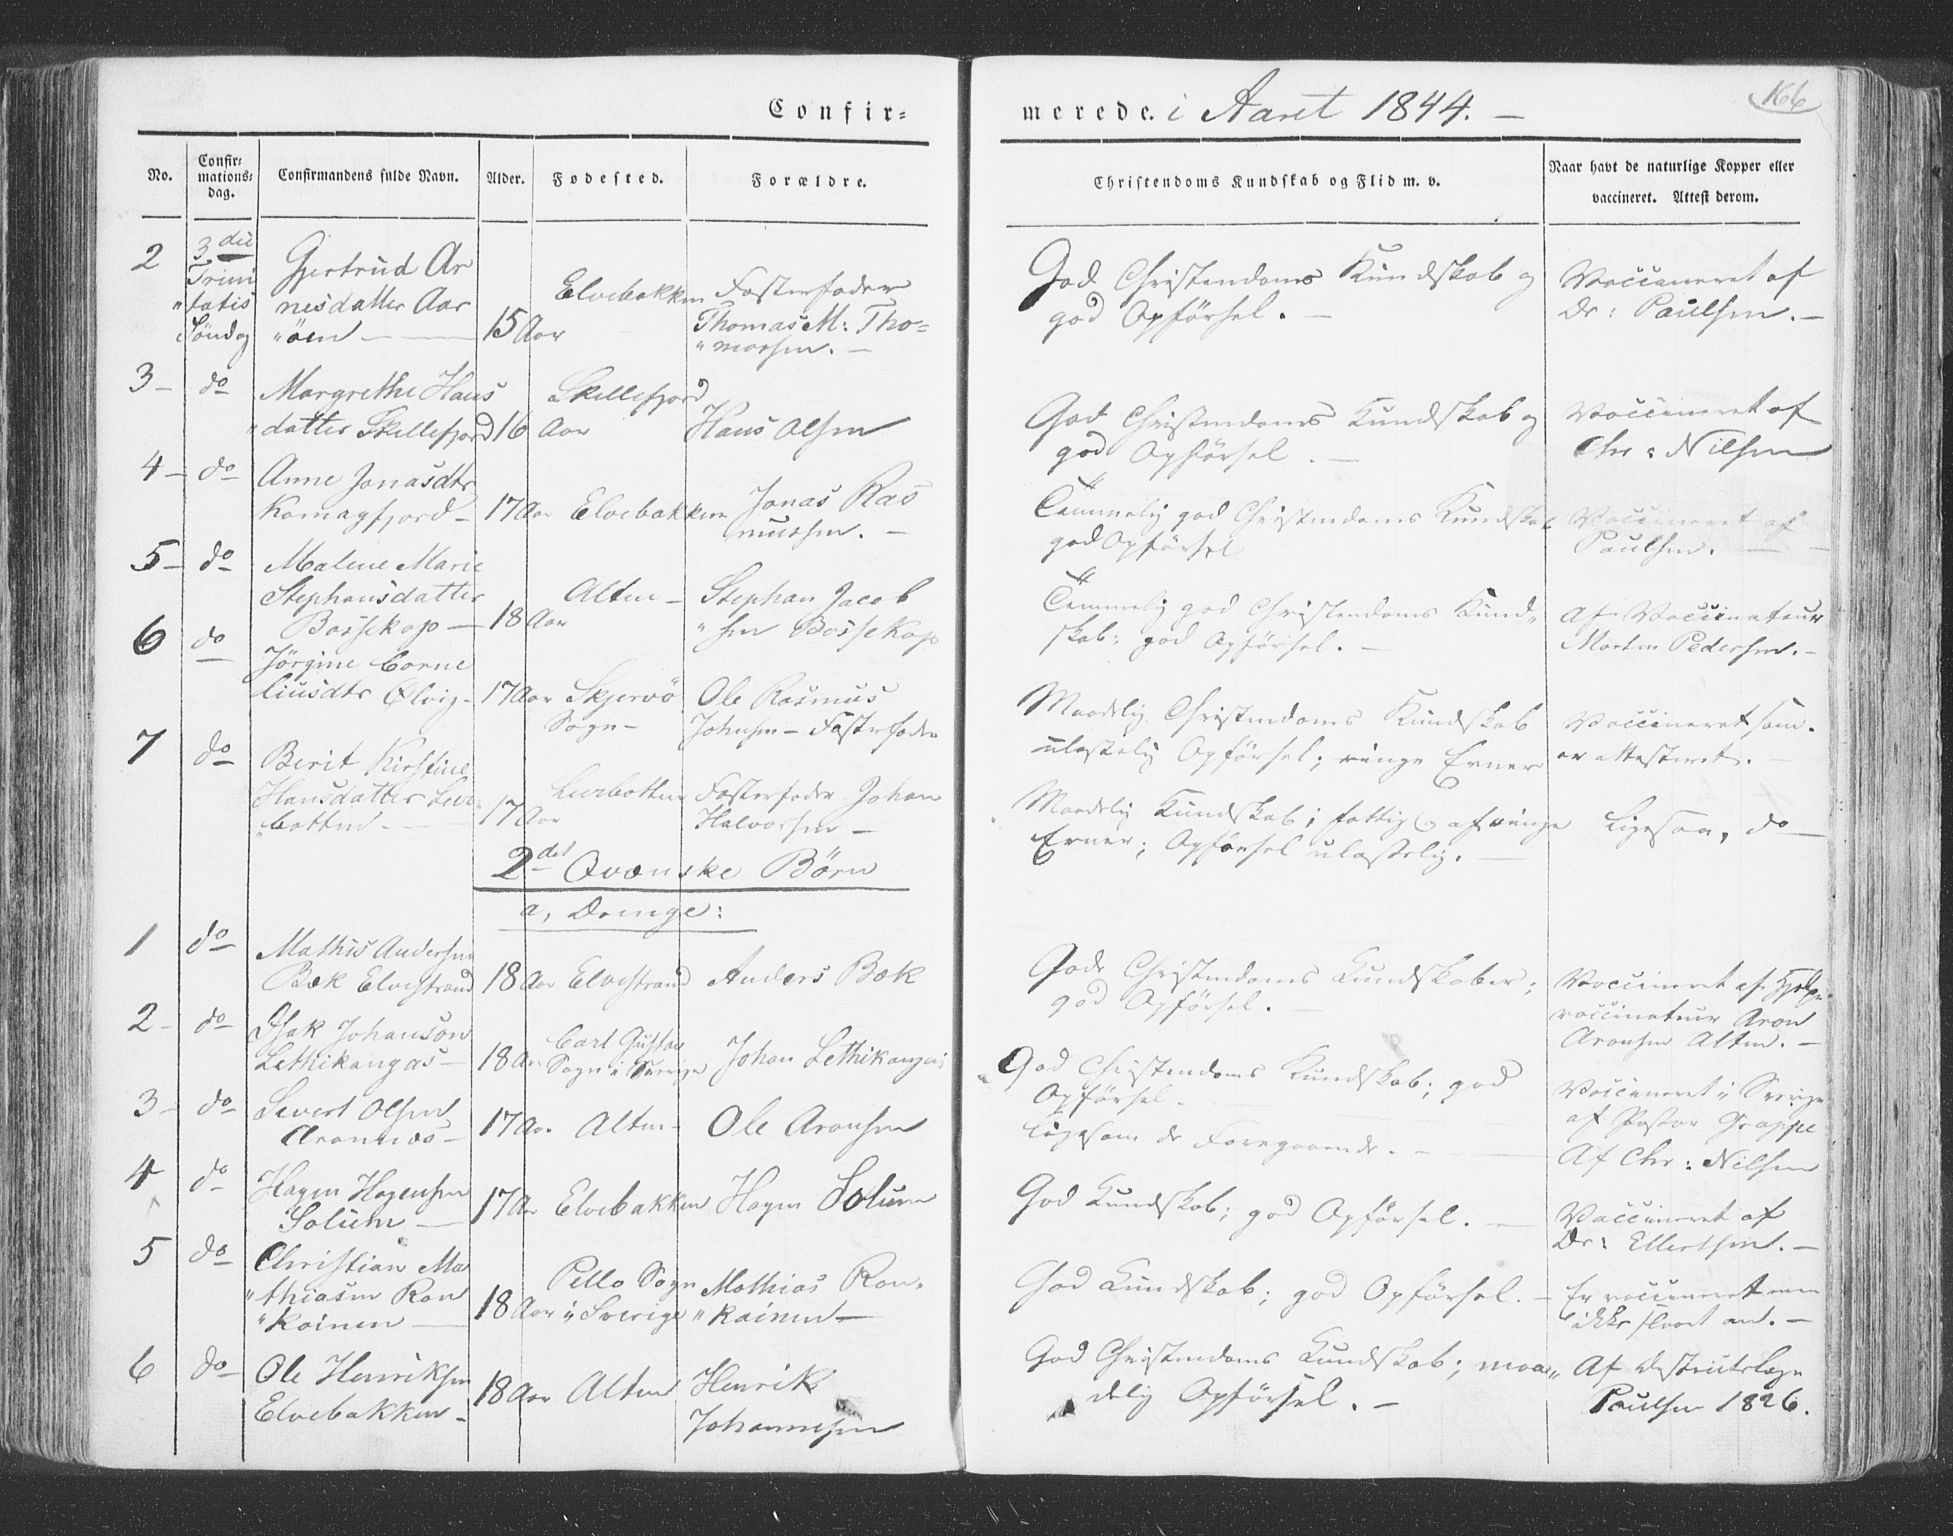 Confir=
merede. i Aaret 1844. –
166
No.
Confir=
mations=
dag.
Confirmandens fulde Navn.
Alder.
Fødested.
Forældre.
Christendoms Kundskab og Flid m. v.
Naar havt de naturlige Kopper eller
vaccineret. Attest derom.
2
3die
Trini
"tatis
Søndag
Gjertrud Ar
nesdatter Aar
"øen –
15 Aar
Elvebakken
Fosterfader
Thomas M: Tho=
"massen. –
God Christendoms Kundskab og
god Opførsel. –
Vaccineret af
Dr: Paulsen. –
3 –
do
Margrethe Hans
"datter Skillefjord
16 Aar
Skillefjord
Hans Olsen
God Christendoms Kundskab og
god Opførsel. –
Vaccineret af
Chr: Nilsen
4 –
do
Anne Jonasdtr
Komagfjord –
17 Aar
Elvebakken
Jonas Ras
mussen. –
Temmelig god Christendoms Kundskab
god Opførsel
Vaccineret af
Paulsen. –
5 –
do
Malene Marie
Stephansdatter
Bossekop –
18 Aar
Alten –
Stephan Jacob
"sen Bossekop
Temmelig god Christendoms Kund=
skab; god Opførsel. –
Af Vaccinateur
Morten Pedersen. –
6
do
Jørgine Corne
liusdtr Ølvig –
17 Aar
Skjervø
Sogn –
Ole Rasmus
Johnsen – Fosterfader
Maadelig Christendoms Kundskab
ulastelig Opførsel; ringe Evner
Vaccineret som
er attesteret. –
7
do
Berit Kirstine
Hansdatter Leir=
"botten. –
17 Aar
Leirbotten
Fosterfader Johan
Halvorsen –
Maadelig Kundskab; fattig og af ringe
Evner; Opførsel ulastelig. –
Ligesaa, do –
2det Qvænske Børn
a, Drenge:
1
do
Mathis Andersen
Bæk Elvestrand
18 Aar
Elvestrand
Anders Bæk
Gode Christendoms Kundskaber;
god Opførsel. –
Vaccineret af Hjelpe
vaccinateur Aron
Aronsen Alten. –
2 –
do
Isak Johanson
Lethikangas –
18 Aar
Carl Gustav
Sogn i Sverige
Johan Lethikangas
God Christendoms Kundskab; god
Opførsel. –
Vaccineret i Sverige
af Pastor Grappe
3 –
do
Sivert Olsen
Aronnæs –
17 Aar
Alten –
Ole Aronsen
Ligesom de Foregaaende. –
Af Chr: Nilsen
4
do
Hagen Hagensen
Solum –
17 Aar
Elvebakken
Hagen Solum
God Kundskab; god Opførsel. –
Vaccineret af
Dr: Ellertsen. –
5
do
Christian Ma
"thiasen Ron
"kainen –
18 Aar
Pello Sogn
i Sverige
Mathias Ron=
"kainen –
God Kundskab; god Opførsel. –
Er vaccineret men
ikke slaaet an. –
6
do
Ole Henriksen
Elvebakken –
18 Aar
Alten
Henrik
Johannesen
God Christendoms Kundskab; maa=
delig Opførsel. –
Af Districtslæge
Paulsen 1826.